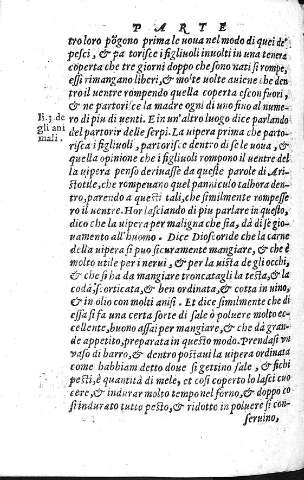 PARTE
tro loro põgono prima le uoua nel modo di quei de'
pesci, & pa torisce i figliuoli inuolti in una tenera
coperta che tre giorni doppo che sono nati si rompe,
essi rimangano liberi, & mo'te uolte auiene che den
tro il uentre rompendo quella coperta escon fuori,
& ne partorice la madre ogni dì uno fino al nume-
ro di piu di uenti. E in un'altro luogo dice parlando
del partorir delle serpi. La uipera prima che parto-
risca i figliuoli, partorisce dentro di se le uoua, &
quella opinione che i figliuoli rompono il uentre del
la uipera penso deriuasse da queste parole di Ari-
stotle, che rompeuano quel panniculo talhora den-
tro, parendo a questi tali, che similmente rompesse-
ro il uentre. Hor lasciando di piu parlare in questo,
dico che la uipera per maligna che sia, dà di se gio-
uamento all'huomo. Dice Dioscoride che la carne
della uipera si puo sicuramente mangiare, & che è
molto utile per i nerui, & per la uista de gli occhi,
& che si ha da mangiare troncatagli la testa, & la
coda, scorticata, & ben ordinata, & cotta in uino,
& in olio con molti anisi. Et dice similmente che di
essa si fa una certa sorte di sale ò poluere molto ec-
cellente, buono assai per mangiare, & che dà gran-
de appetito, preparata in questo modo. Prendasi vn
vaso di barro, & dentro postaui la uipera ordinata
come habbiam detto doue si gettino sale, & fichi
pesti, è quantità di mele, et cosi coperto lo lasci cuo
cere, & indurar molto tempo nel forno, & doppo co
si indurato tutto pesto, & ridotto in poluere si con-
seruino,
li. 3. de
gli ani
mali.